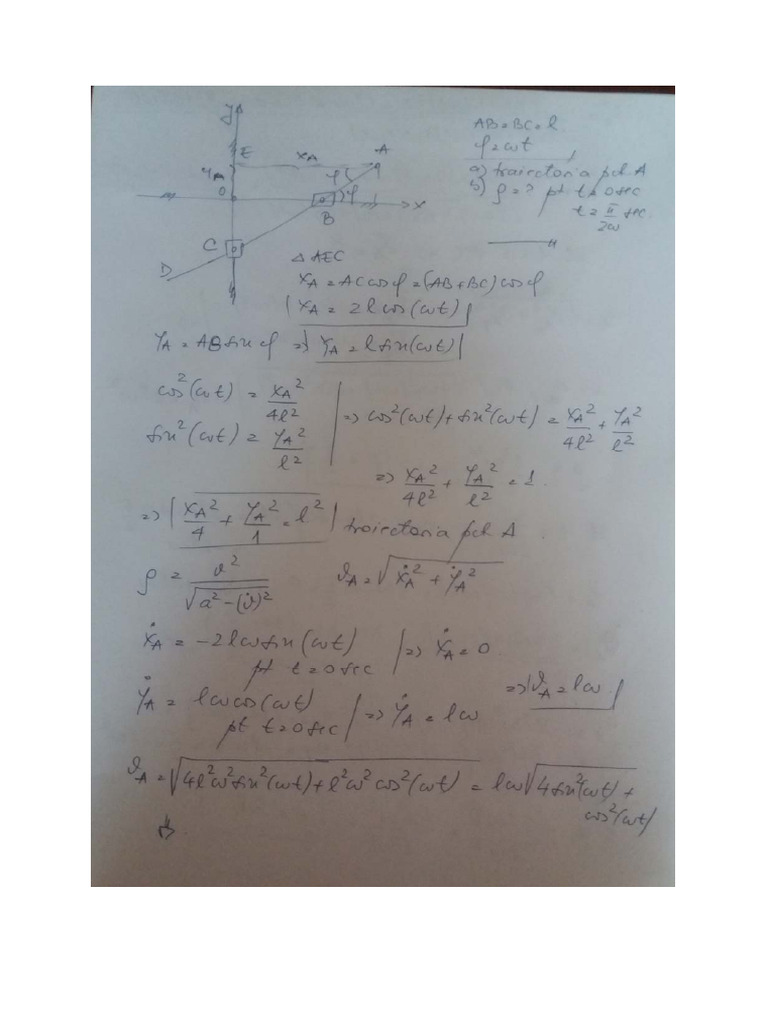 y
E
x_A
A
AB = BC = l
φ = ωt
a) traiectoria pct A
b) ρ = ? pt t = 0 sec
t = π/2ω sec.
y_A
φ
φ
O
B
x
C
D
Δ AEC
x_A = AC cos φ = (AB + BC) cos φ
x_A = 2l cos(ωt)
y_A = AB sin φ => y_A = l sin(ωt)
cos²(ωt) = x_A²/4l²
sin²(ωt) = y_A²/l²
=> cos²(ωt) + sin²(ωt) = x_A²/4l² + y_A²/l²
=> x_A²/4l² + y_A²/l² = 1.
=> x_A²/4 + y_A²/1 = l² traiectoria pct A.
ρ = v²/√(a² - (v̇)²) v_A = √(ẋ_A² + ẏ_A²)
ẋ_A = -2lω sin(ωt) | => ẋ_A = 0
pt t = 0 sec
ẏ_A = lω cos(ωt) | => ẏ_A = lω
pt t = 0 sec
=> v_A = lω
v_A = √(4l²ω² sin²(ωt) + l²ω² cos²(ωt)) = lω √(4 sin²(ωt) +
cos²(ωt))